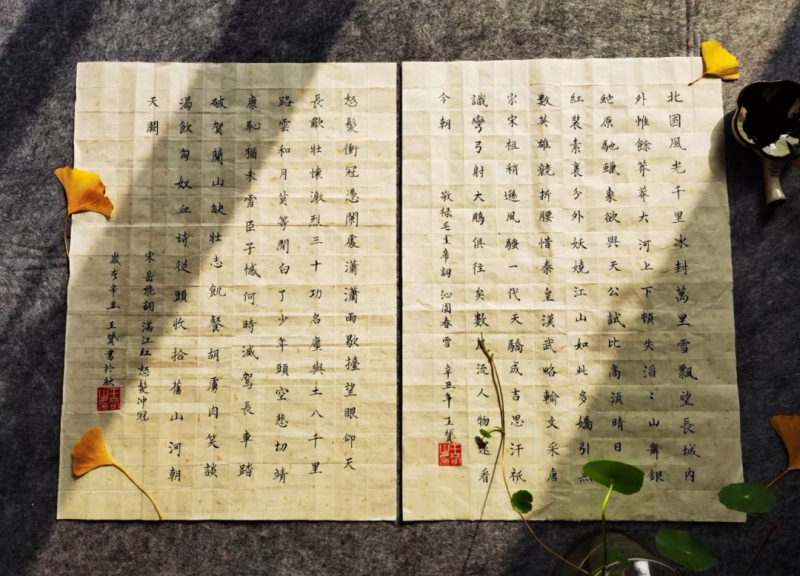 北國風光千里冰封萬里雪飄望長城內
外惟餘莽莽大河上下頓失滔〻山舞銀
蛇原馳蠟象欲與天公試比高須晴日
紅裝素裹分外妖嬈江山如此多嬌引無
數英雄競折腰惜秦皇漢武略輸文采唐
宗宋祖稍遜風騷一代天驕成吉思汗祇
識彎弓射大鵰俱往矣數流人物還看
今朝
敬錄毛主席詞 沁園春雪 辛丑年 王贇
怒髮衝冠憑闌處瀟瀟雨歇擡望眼仰天
長歗壯懷激烈三十功名塵與土八千里
路雲和月莫等閒白了少年頭空悲切靖
康恥猶未雪臣子憾何時滅駕長車踏
破賀蘭山缺壯志飢餐胡虜肉笑談
渴飲匈奴血待從頭收拾舊山河朝
天闕
宋岳飛詞 滿江紅 怒髮沖冠
歲在辛丑 王贇書於秋